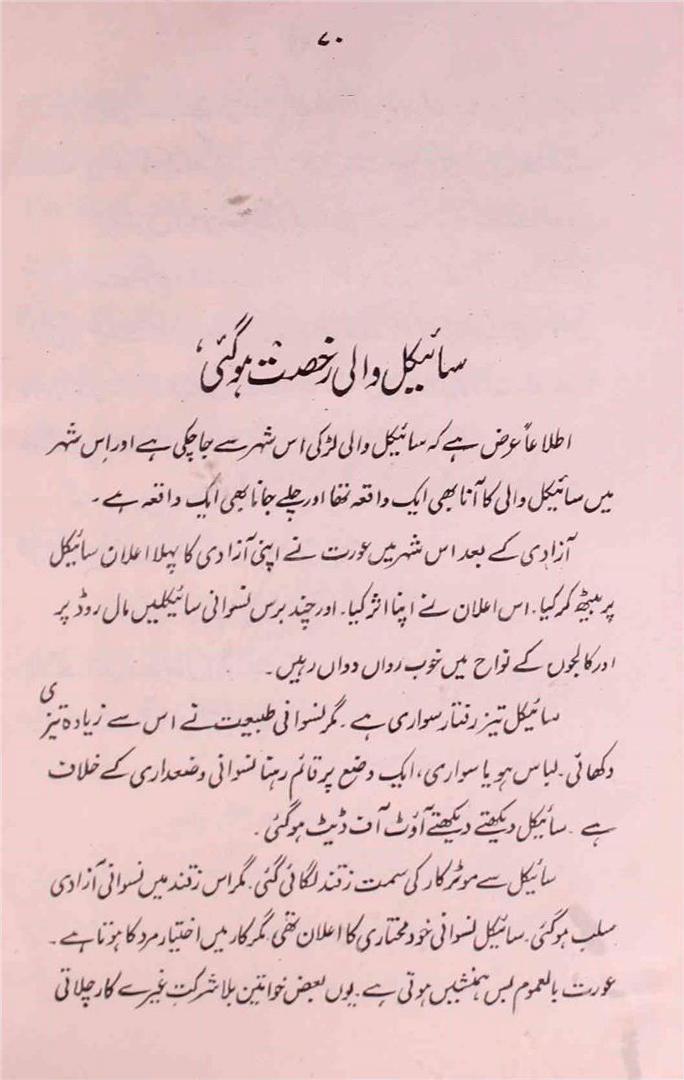 ۷۰
سائیکل والی رخصت ہوگئی،
اطلاعاً عرض ہے کہ سائیکل والی لڑکی اس شہر سے جاچکی ہے اور اس شہر
میں سائیکل والی کا آنا بھی ایک واقعہ تھا اور چلے جانا بھی ایک واقعہ ہے۔
آزادی کے بعد اس شہر میں عورت نے اپنی آزادی کا پہلا اعلان سائیکل
پر بیٹھ کر کیا۔ اس اعلان نے اپنا اثر کیا۔ اور چند برس نسوانی سائیکلیں مال روڈ پر
اور کالجوں کے نواح میں خوب رواں دواں رہیں۔
سائیکل تیز رفتار سواری ہے۔ مگر نسوانی طبیعت نے اس سے زیادہ تیزی
دکھائی۔ لباس ہو یا سواری، ایک وضع پر قائم رہنا نسوانی وضعداری کے خلاف
ہے۔ سائیکل دیکھتے دیکھتے آؤٹ آف ڈیٹ ہوگئی۔
سائیکل سے موٹر کار کی سمت زقند لگائی گئی۔ مگر اس زقند میں نسوانی آزادی
سلب ہوگئی۔ سائیکل نسوانی خود مختاری کا اعلان تھی۔ مگر کار میں اختیار مرد کا ہوتا ہے۔
عورت بالعموم بس ہمنشیں ہوتی ہے۔ یوں بعض خواتین بلا شرکتِ غیرے کار چلاتی